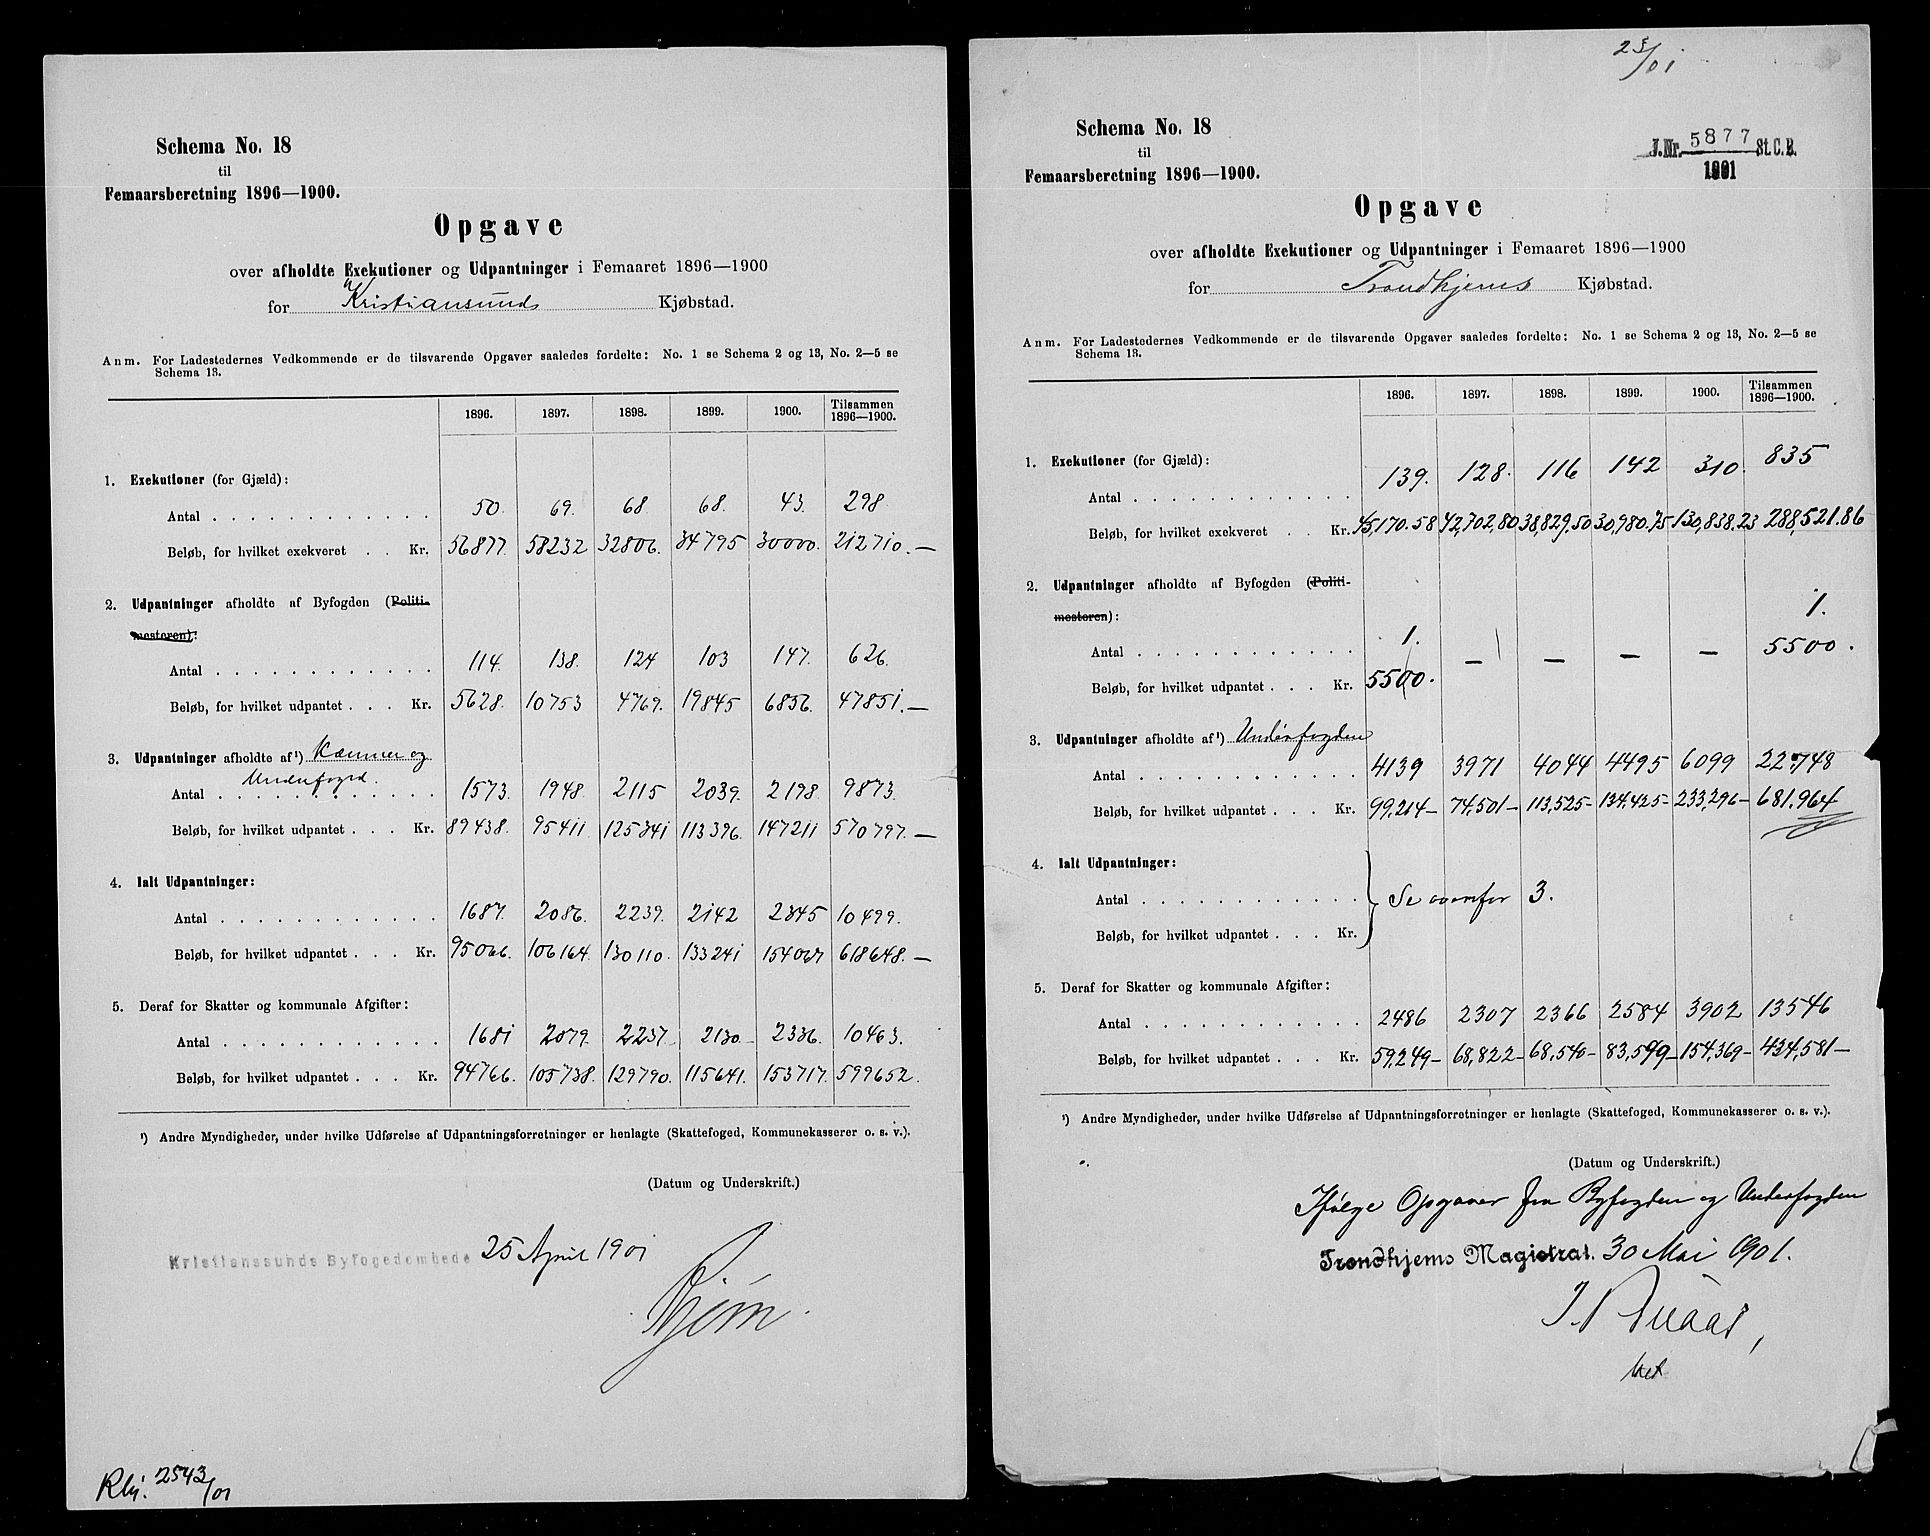 Schema No. 18
til
Femaarsberetning 1896—1900.
Opgave
over afholdte Exekutioner og Udpantninger i Femaaret 1896—1900
for Kristiansunds Kjøbstad.
Anm. For Ladestedernes Vedkommende er de tilsvarende Opgaver saaledes fordelte: No. 1 se Schema 2 og 13, No. 2—5 se
Schema 13.
1896. 1897. 1898. 1899. 1900. Tilsammen 1896—1900.
1. Exekutioner (for Gjæld):
Antal 50. 69. 68. 68. 43. 298.
Beløb, for hvilket exekveret Kr. 56877. 58232 32806. 34795 30000. 212710.—
2. Udpantninger afholdte af Byfogden (Politi-
mesteren):
Antal 114. 138. 124 103 147. 626.
Beløb, for hvilket udpantet Kr. 5628. 10753 4769. 19845 6856. 47851.—
3. Udpantninger afholdte af¹) Kæmner og
Underfoged.
Antal 1573. 1948. 2115 2039. 2198. 9873.
Beløb, for hvilket udpantet Kr. 89438. 95411. 125341 113396. 147211 570797.—
4. Ialt Udpantninger:
Antal 1687. 2086. 2239. 2142 2345 10499.
Beløb, for hvilket udpantet Kr. 95066. 106164. 130110. 133241 154067 618648.—
5. Deraf for Skatter og kommunale Afgifter:
Antal 1681 2079. 2237. 2130. 2336. 10463.
Beløb, for hvilket udpantet Kr. 94766. 105738. 129790. 115641. 153717. 599652.
¹) Andre Myndigheder, under hvilke Udførelse af Udpantningsforretninger er henlagte (Skattefoged, Kommunekasserer o. s. v.).
(Datum og Underskrift.)
Kristianssunds Byfogedembede 25 April 1901
Rkj. 2543/01
23/5 01
Schema No. 18
til
Femaarsberetning 1896—1900.
J.Nr. 5877 St.C.B.
1901
Opgave
over afholdte Exekutioner og Udpantninger i Femaaret 1896—1900
for Trondhjems Kjøbstad.
Anm. For Ladestedernes Vedkommende er de tilsvarende Opgaver saaledes fordelte: No. 1 se Schema 2 og 13, No. 2—5 se
Schema 13.
1896. 1897. 1898. 1899. 1900. Tilsammen 1896—1900.
1. Exekutioner (for Gjæld):
Antal 139. 128. 116 142 310. 835
Beløb, for hvilket exekveret Kr. 45,170.58 42,702,80 38,829.50 30,980.75 130,838.23 288,521.86
2. Udpantninger afholdte af Byfogden (Politi-
mesteren):
Antal 1. — — — — 1.
Beløb, for hvilket udpantet Kr. 5500. 5500.
3. Udpantninger afholdte af¹) Underfogden
Antal 4139 3971 4044 4495 6099 22748
Beløb, for hvilket udpantet Kr. 99,214— 74,501— 113,525— 134,425— 233,296— 681,964
4. Ialt Udpantninger:
Antal
Se ovenfor 3.
Beløb, for hvilket udpantet Kr.
5. Deraf for Skatter og kommunale Afgifter:
Antal 2486 2307 2366 2584 3902 13546
Beløb, for hvilket udpantet Kr. 59,249— 68,822— 68,540— 83,599— 154,369— 434,581—
¹) Andre Myndigheder, under hvilke Udførelse af Udpantningsforretninger er henlagte (Skattefoged, Kommunekasserer o. s. v.).
(Datum og Underskrift.)
Ifølge Opgaver fra Byfogden og Underfogden
Trondhjems Magistrat. 30 Mai 1901.